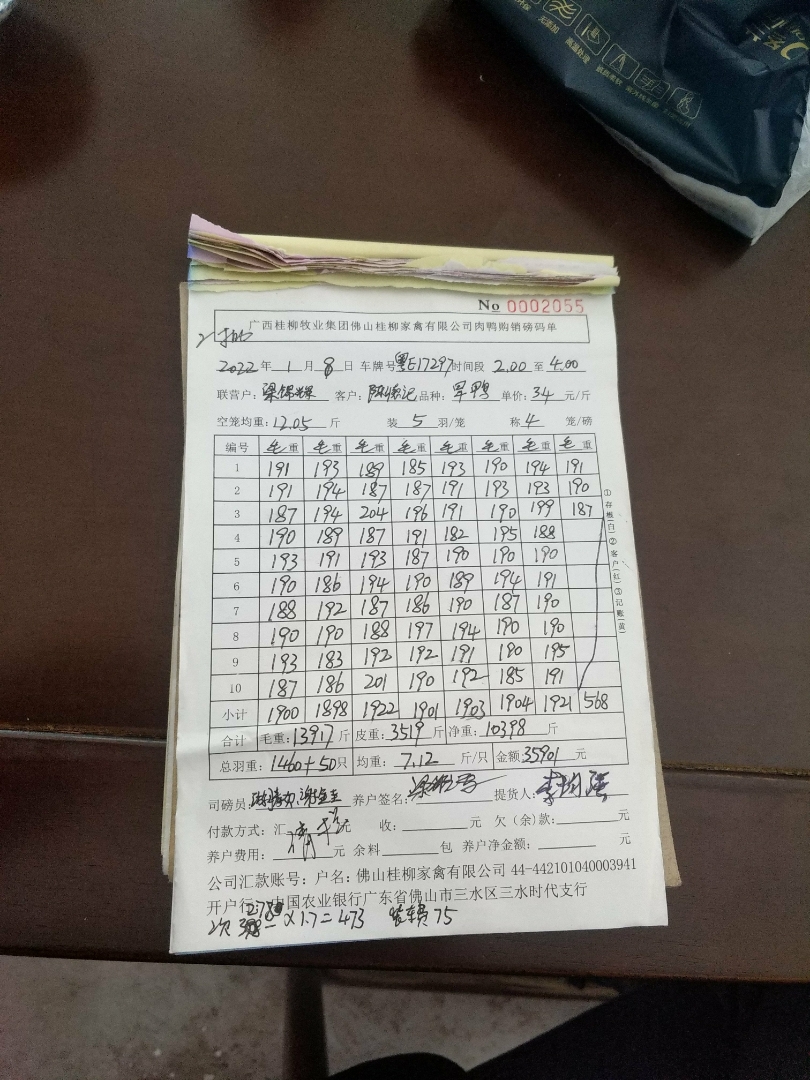 无添加
高温处理
No 0002055
广西桂柳牧业集团佛山桂柳家禽有限公司肉鸭购销磅码单
2022年1月8日 车牌号粤E17297时间段2.00至4.00
联营户:梁锦辉 客户: 品种:旱鸭 单价:34元/斤
空笼均重:12.05斤 装5羽/笼 称4笼/磅
编号 毛重 毛重 毛重 毛重 毛重 毛重 毛重 毛重
1 191 193 189 185 193 190 194 191
2 191 194 187 187 191 193 193 190
3 187 194 204 196 191 190 199 187
4 190 189 187 191 182 195 188
5 193 191 193 187 190 190 190
6 190 186 194 190 189 194 191
7 188 192 187 186 190 187 190
8 190 190 188 197 194 190 190
9 193 183 192 192 191 190 195
10 187 186 201 190 192 185 191
小计 1900 1898 1922 1901 1903 1904 1921 568
合计 毛重:13917斤 皮重:3519斤 净重:10398斤
总羽重:1460+50只 均重:7.12斤/只 金额:35901元
①存根(白)②客户(红)③记账(黄)
司磅员: 养户签名: 提货人:
付款方式:汇 元 收: 元 欠(余)款: 元
养户费用: 元 余料 包 养户净金额: 元
公司汇款账号:户名:佛山桂柳家禽有限公司 44-442101040003941
开户行: 中国农业银行广东省佛山市三水区三水时代支行
278
2次 ×1.7=473 装车费75